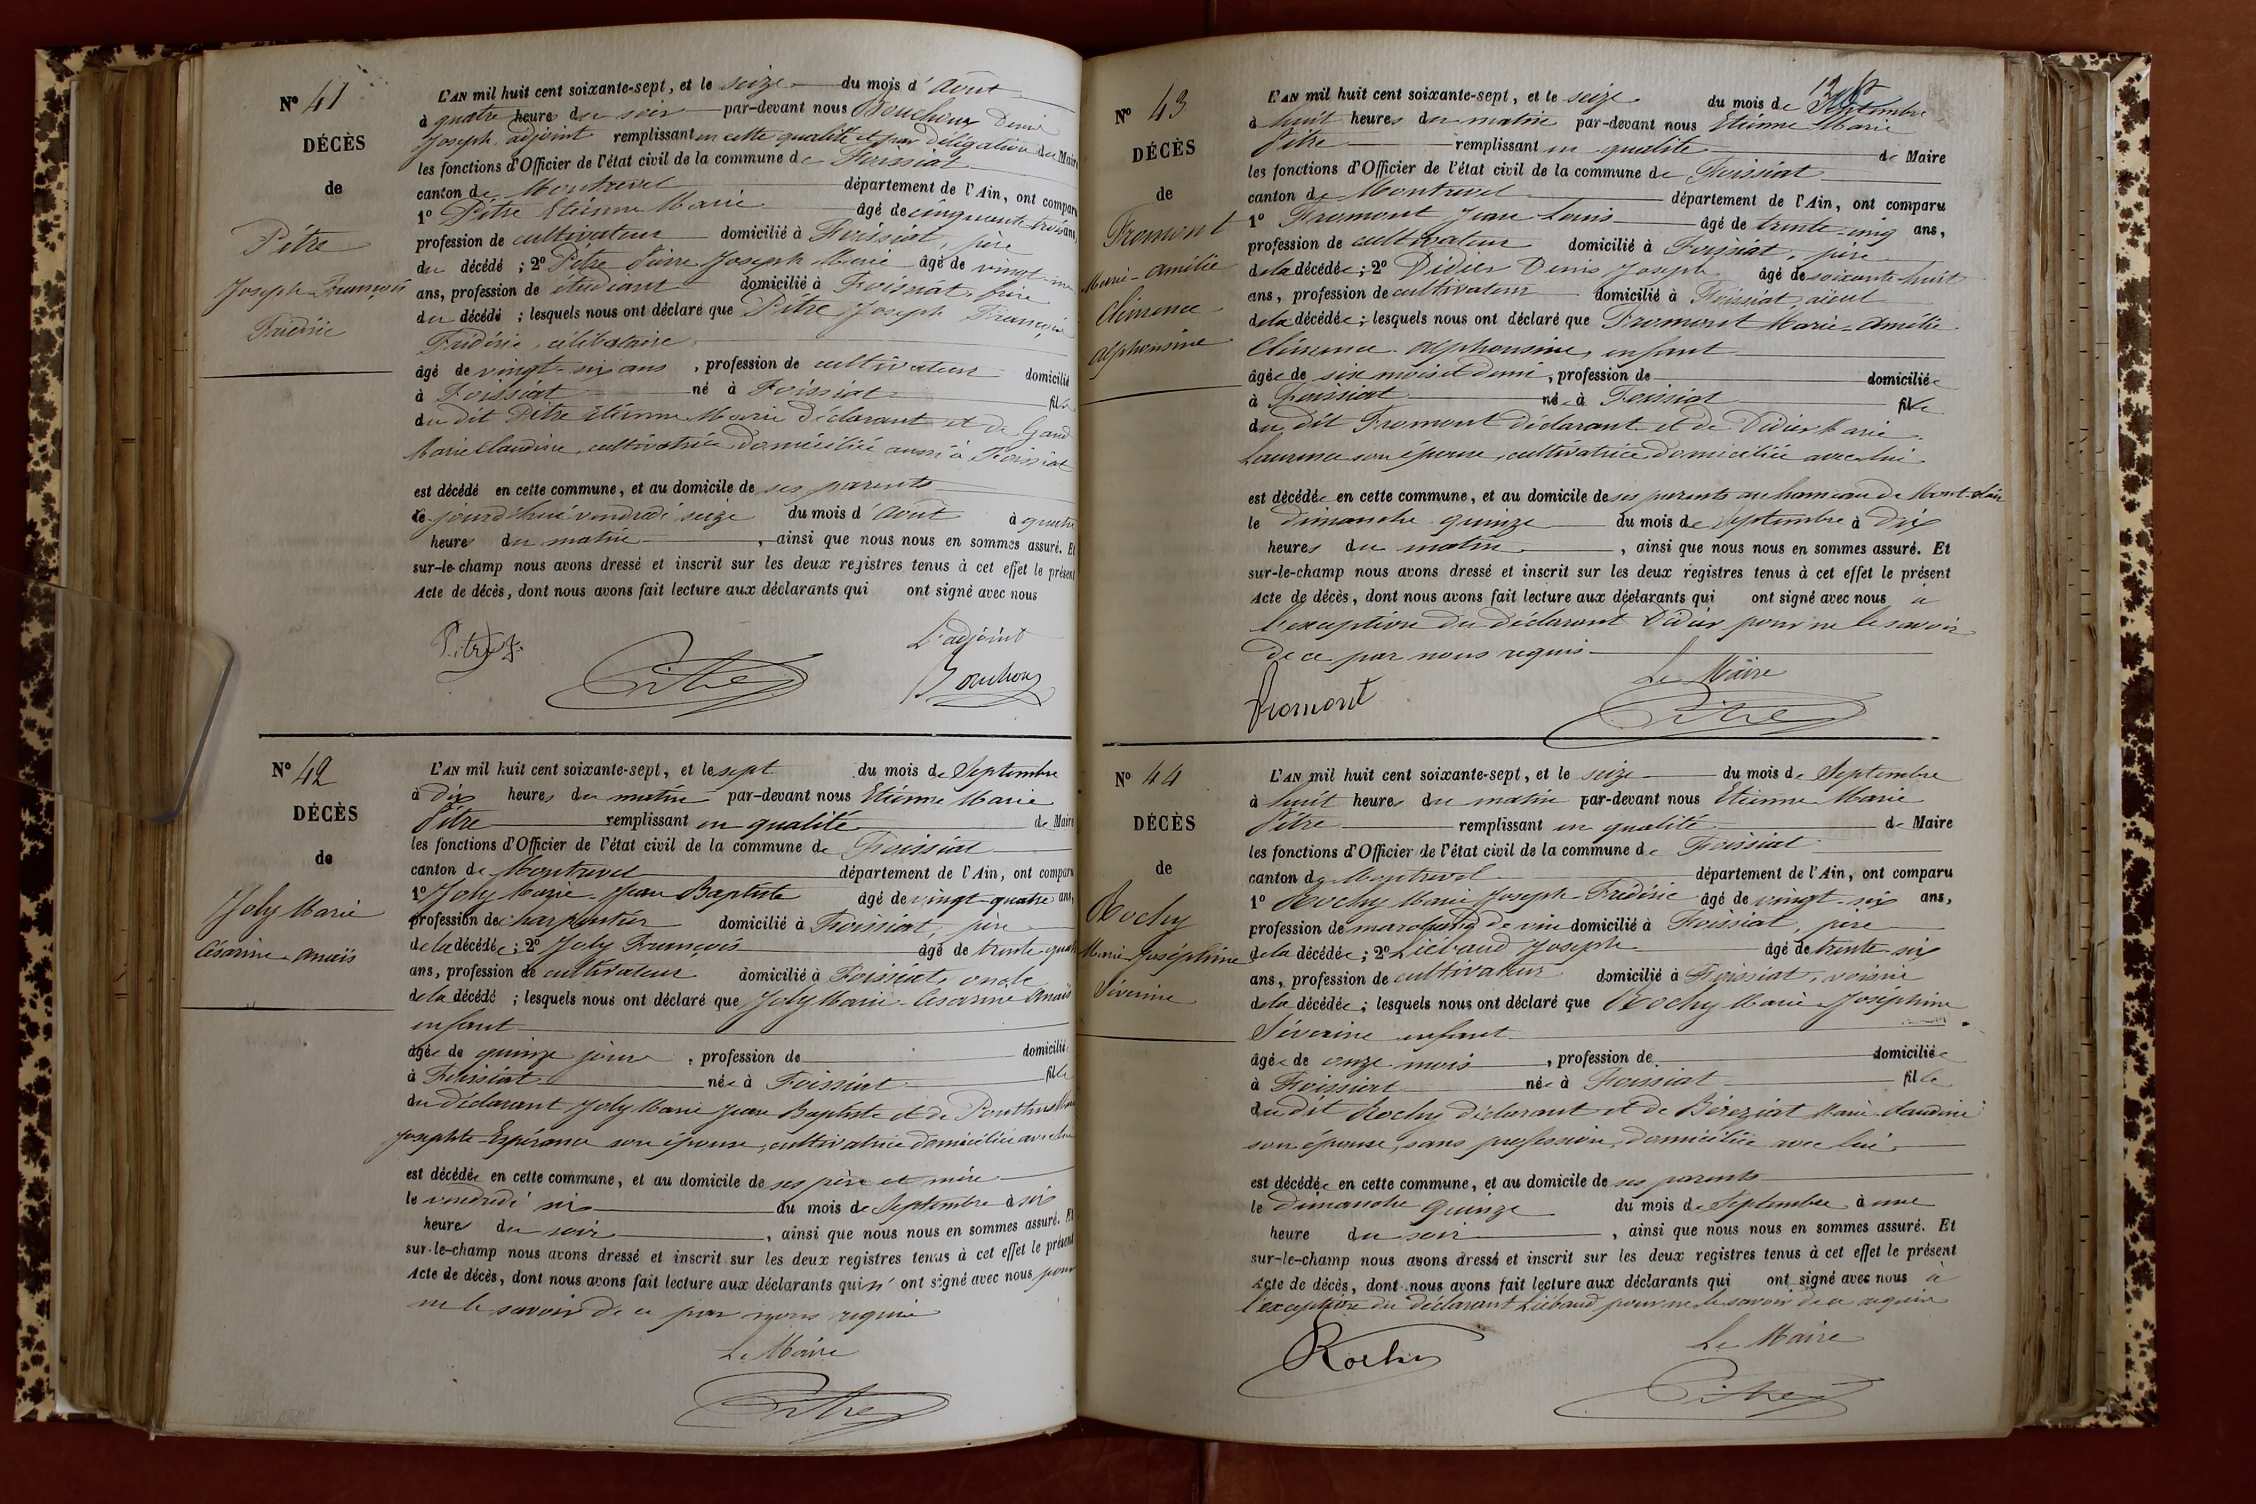 N° 41
DÉCÈS
de
Pitre
Joseph François
Frédéric
L'AN mil huit cent soixante-sept, et le seize du mois d'Août
à quatre heures du soir par-devant nous Bouchoux Denis
Joseph adjoint remplissant en cette qualité et par délégation du Maire
les fonctions d'Officier de l'état civil de la commune de Foissiat
canton de Montrevel département de l'Ain, ont comparu
1° Pitre Etienne Marie âgé de cinquante trois ans,
profession de cultivateur domicilié à Foissiat, père
du décédé ; 2° Pitre Pierre Joseph Marie âgé de vingt
ans, profession de étudiant domicilié à Foissiat, frère
du décédé ; lesquels nous ont déclaré que Pitre Joseph François
Frédéric, célibataire
âgé de vingt-six ans , profession de cultivateur domicilié
à Foissiat né à Foissiat fils
du dit Pitre Etienne Marie déclarant et de Gand
Marie Claudine, cultivatrice domiciliée aussi à Foissiat
est décédé en cette commune, et au domicile de ses parents
le jourd'hui vendredi seize du mois d'Août à quatre
heures du matin , ainsi que nous nous en sommes assuré. Et
sur-le-champ nous avons dressé et inscrit sur les deux registres tenus à cet effet le présent
Acte de décès, dont nous avons fait lecture aux déclarants qui ont signé avec nous
L'adjoint
Pitre Bouchoux
N° 42
DÉCÈS
de
Joly Marie
Césarine-Anaïs
L'AN mil huit cent soixante-sept, et le sept du mois de Septembre
à dix heures du matin par-devant nous Etienne Marie
Pitre remplissant en qualité de Maire
les fonctions d'Officier de l'état civil de la commune de Foissiat
canton de Montrevel département de l'Ain, ont comparu
1° Joly Marie-Jean Baptiste âgé de vingt-quatre ans,
profession de charpentier domicilié à Foissiat, père
de la décédée ; 2° Joly François âgé de trente-quatre
ans, profession de cultivateur domicilié à Foissiat, oncle
de la décédé ; lesquels nous ont déclaré que Joly Marie-Césarine Anaïs
enfant
âgée de quinze jours , profession de domiciliée
à Foissiat née à Foissiat fille
du déclarant Joly Marie Jean Baptiste et de Ponthus
Josephte-Espérance son épouse, cultivatrice domiciliée avec lui
est décédée en cette commune, et au domicile de ses père et mère
le vendredi six du mois de Septembre à six
heures du soir , ainsi que nous nous en sommes assuré. Et
sur-le-champ nous avons dressé et inscrit sur les deux registres tenus à cet effet le présent
Acte de décès, dont nous avons fait lecture aux déclarants qui n'ont signé avec nous pour
ne le savoir de ce par nous requis
Le Maire
Pitre
N° 43
DÉCÈS
de
Fromont
Marie-Amélie
Clémence
Alphonsine
L'AN mil huit cent soixante-sept, et le seize du mois de Septembre
à huit heures du matin par-devant nous Etienne Marie
Pitre remplissant en qualité de Maire
les fonctions d'Officier de l'état civil de la commune de Foissiat
canton de Montrevel département de l'Ain, ont comparu
1° Fromont Jean-Louis âgé de trente-cinq ans,
profession de cultivateur domicilié à Foissiat, père
de la décédée ; 2° Didier Denis Joseph âgé de soixante-huit
ans, profession de cultivateur domicilié à Foissiat, aïeul
de la décédée ; lesquels nous ont déclaré que Fromont Marie-Amélie
Clémence-Alphonsine, enfant
âgée de six mois et demi , profession de domiciliée
à Foissiat née à Foissiat fille
du dit Fromont déclarant et de Didier Marie
Laurence son épouse, cultivatrice domiciliée avec lui
est décédée en cette commune, et au domicile de ses parents au hameau de
le dimanche quinze du mois de Septembre à dix
heures du matin , ainsi que nous nous en sommes assuré. Et
sur-le-champ nous avons dressé et inscrit sur les deux registres tenus à cet effet le présent
Acte de décès, dont nous avons fait lecture aux déclarants qui ont signé avec nous à
l'exception du déclarant Didier pour ne le savoir
de ce par nous requis
Le Maire
Fromont Pitre
N° 44
DÉCÈS
de
Rochy
Marie-Joséphine
Séverine
L'AN mil huit cent soixante-sept, et le seize du mois de Septembre
à huit heures du matin par-devant nous Etienne Marie
Pitre remplissant en qualité de Maire
les fonctions d'Officier de l'état civil de la commune de Foissiat
canton de Montrevel département de l'Ain, ont comparu
1° Rochy Marie Joseph-Frédéric âgé de vingt-six ans,
profession de marchand de vin domicilié à Foissiat, père
de la décédée ; 2° Liébaud Joseph âgé de trente-six
ans, profession de cultivateur domicilié à Foissiat, voisin
de la décédée ; lesquels nous ont déclaré que Rochy Marie-Joséphine
Séverine enfant
âgée de onze mois , profession de domiciliée
à Foissiat née à Foissiat fille
du dit Rochy déclarant et de Béreziat Marie-Claudine
son épouse, sans profession, domiciliée avec lui
est décédée en cette commune, et au domicile de ses parents
le dimanche quinze du mois de Septembre à une
heure du soir , ainsi que nous nous en sommes assuré. Et
sur-le-champ nous avons dressé et inscrit sur les deux registres tenus à cet effet le présent
Acte de décès, dont nous avons fait lecture aux déclarants qui ont signé avec nous à
l'exception du déclarant Liébaud pour ne le savoir de ce requis
Le Maire
Rochy Pitre